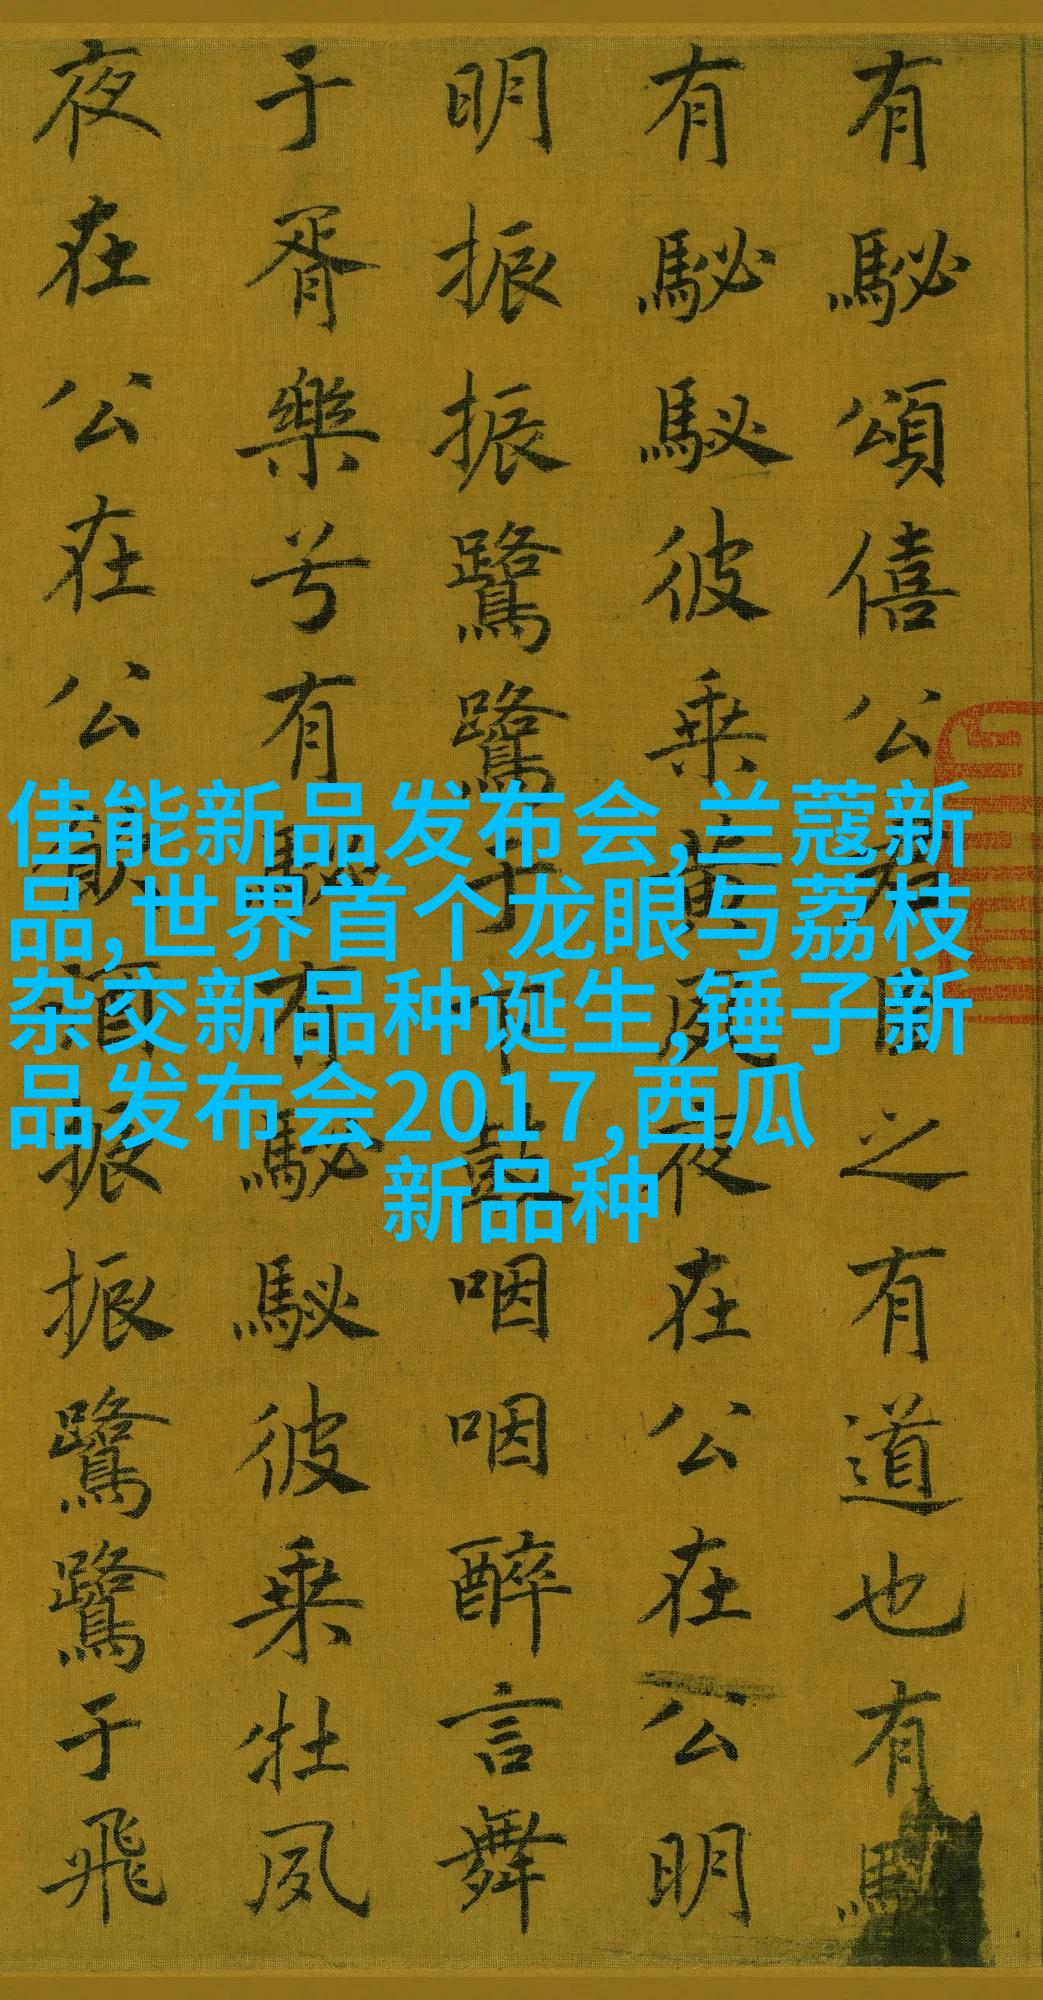 有駜頌僖公君臣之有道也有
有駜駜彼乘黃夙夜在公在公明
明振振鷺鷺于下鼓咽咽醉言舞
于胥樂兮有駜有駜駜彼乘牡夙
夜在公在公飲酒振振鷺鷺于飛
佳能新品发布会,兰蔻新
品,世界首个龙眼与荔枝
杂交新品种诞生,锤子新
品发布会2017,西瓜
新品种